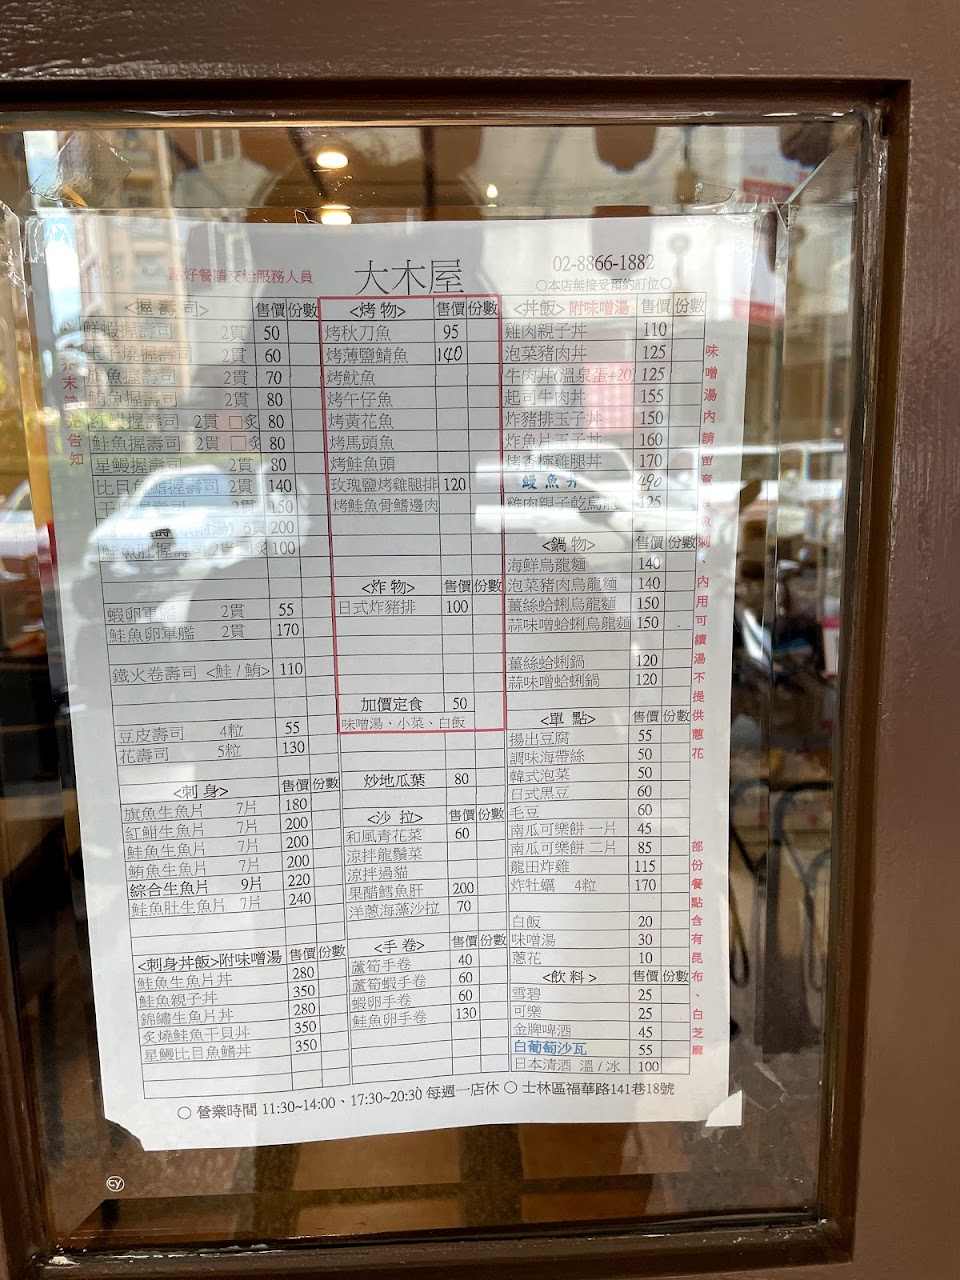 點好餐請交給服務人員
大木屋
02-8866-1882
○本店無接受預約訂位○
<握壽司> 售價 份數
鮮蝦握壽司 2貫 50
玉子燒握壽司 2貫 60
旗魚握壽司 2貫 70
鮪魚握壽司 2貫 80
紅魽握壽司 2貫 □炙 80
鮭魚握壽司 2貫 □炙 80
星鰻握壽司 2貫 80
比目魚鰭握壽司 2貫 140
2貫 150
6貫 200
鮭魚肚握壽司 2貫 □炙 100
蝦卵軍艦 2貫 55
鮭魚卵軍艦 2貫 170
鐵火卷壽司 <鮭/鮪> 110
豆皮壽司 4粒 55
花壽司 5粒 130
<刺身> 售價 份數
旗魚生魚片 7片 180
紅魽生魚片 7片 200
鮭魚生魚片 7片 200
鮪魚生魚片 7片 200
綜合生魚片 9片 220
鮭魚肚生魚片 7片 240
<刺身丼飯>附味噌湯 售價 份數
鮭魚生魚片丼 280
鮭魚親子丼 350
錦繡生魚片丼 280
炙燒鮭魚干貝丼 350
星鰻比目魚鰭丼 350
<烤物> 售價 份數
烤秋刀魚 95
烤薄鹽鯖魚 140
烤魷魚
烤午仔魚
烤黃花魚
烤馬頭魚
烤鮭魚頭
玫瑰鹽烤雞腿排 120
烤鮭魚骨鰭邊肉
<炸物> 售價 份數
日式炸豬排 100
加價定食 50
味噌湯、小菜、白飯
炒地瓜葉 80
<沙拉> 售價 份數
和風青花菜 60
涼拌龍鬚菜
涼拌過貓
果醋鱈魚肝 200
洋蔥海藻沙拉 70
<手卷> 售價 份數
蘆筍手卷 40
蘆筍蝦手卷 60
蝦卵手卷 60
鮭魚卵手卷 130
<丼飯>附味噌湯 售價 份數
雞肉親子丼 110
泡菜豬肉丼 125
牛肉丼(溫泉蛋+20) 125
起司牛肉丼 155
炸豬排玉子丼 150
炸魚片玉子丼 160
烤香檸雞腿丼 170
鰻魚丼 490
雞肉親子乾烏龍 125
<鍋物> 售價 份數
海鮮烏龍麵 140
泡菜豬肉烏龍麵 140
薑絲蛤蜊烏龍麵 150
蒜味噌蛤蜊烏龍麵 150
薑絲蛤蜊鍋 120
蒜味噌蛤蜊鍋 120
<單點> 售價 份數
揚出豆腐 55
調味海帶絲 50
韓式泡菜 50
日式黑豆 60
毛豆 60
南瓜可樂餅 一片 45
南瓜可樂餅 二片 85
龍田炸雞 115
炸牡蠣 4粒 170
白飯 20
味噌湯 30
蔥花 10
<飲料> 售價 份數
雪碧 25
可樂 25
金牌啤酒 45
白葡萄沙瓦 55
日本清酒 溫/冰 100
味噌湯內請留意魚刺、內用可續湯不提供蔥花
部份餐點含有昆布、白芝麻
○ 營業時間 11:30~14:00、17:30~20:30 每週一店休 ○ 士林區福華路141巷18號
cy